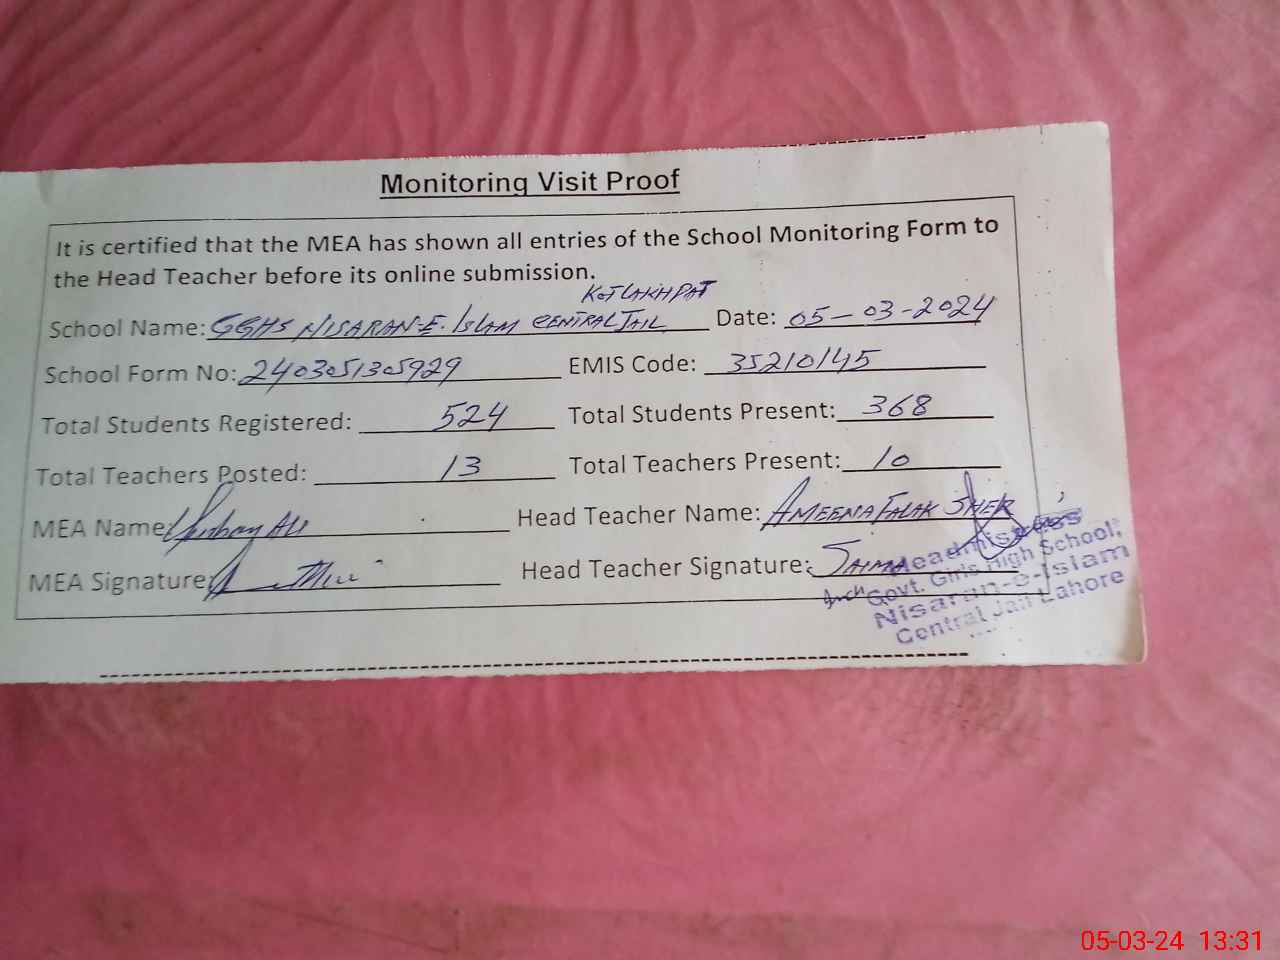 Monitoring Visit Proof
It is certified that the MEA has shown all entries of the School Monitoring Form to
the Head Teacher before its online submission.
KOT LAKHPAT
School Name: GGHS NISARAN-E-ISLAM CENTRAL JAIL Date: 05-03-2024
School Form No: 2403051305929 EMIS Code: 35210145
Total Students Registered: 524 Total Students Present: 368
Total Teachers Posted: 13 Total Teachers Present: 10
MEA Name: Ali Head Teacher Name: AMEENA FALAK SHER
MEA Signature: Head Teacher Signature: SAIMA
Headmistress
Govt. Girls High School,
Nisaran-e-Islam
Central Jail Lahore
05-03-24 13:31